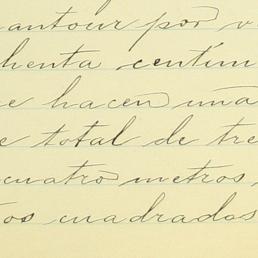 cantour por v
henta centím
e hacen una
e total de tre
cuatro metros,
tos cuadrados